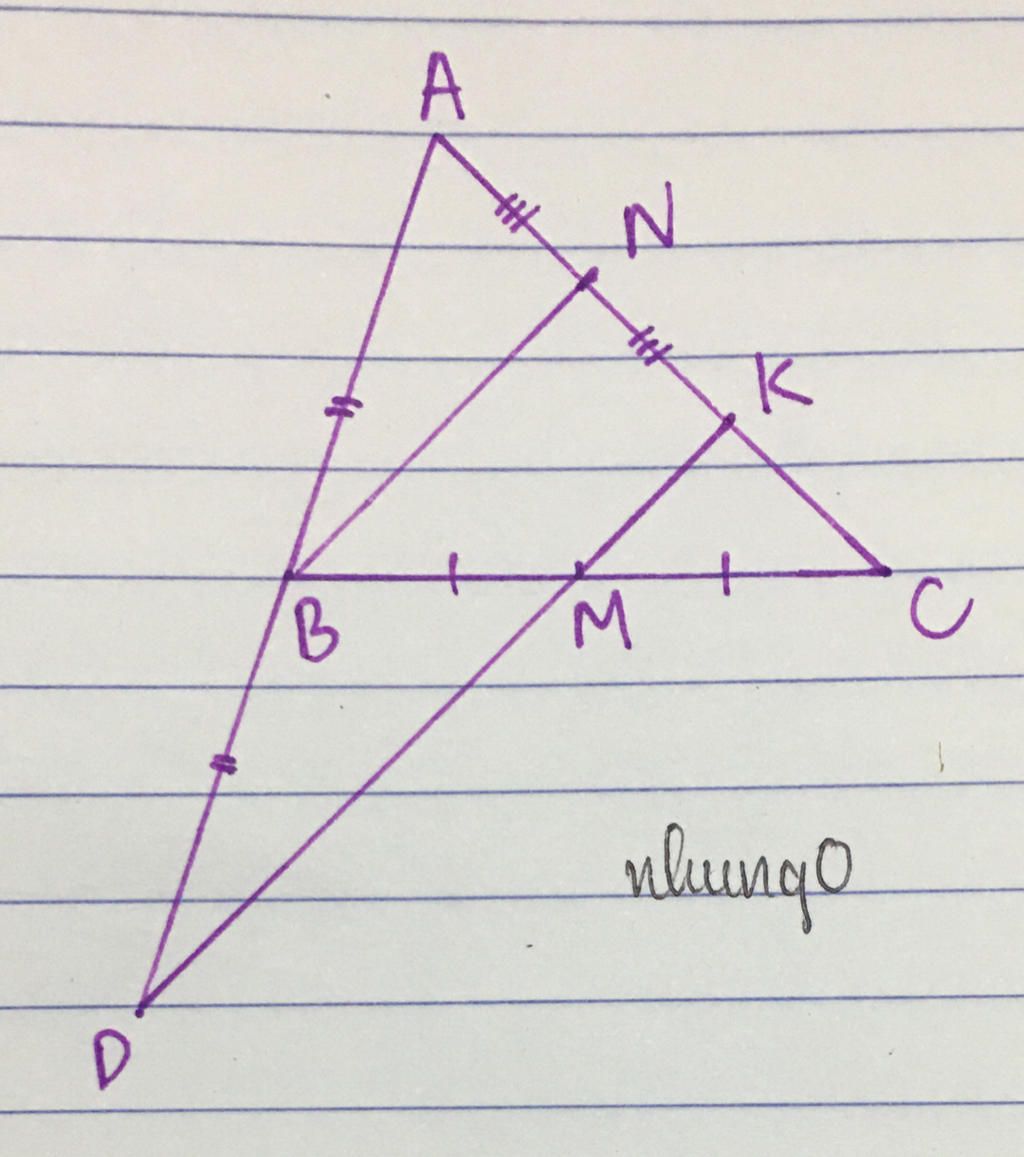 A
N
K
B
M
C
nhung0
D